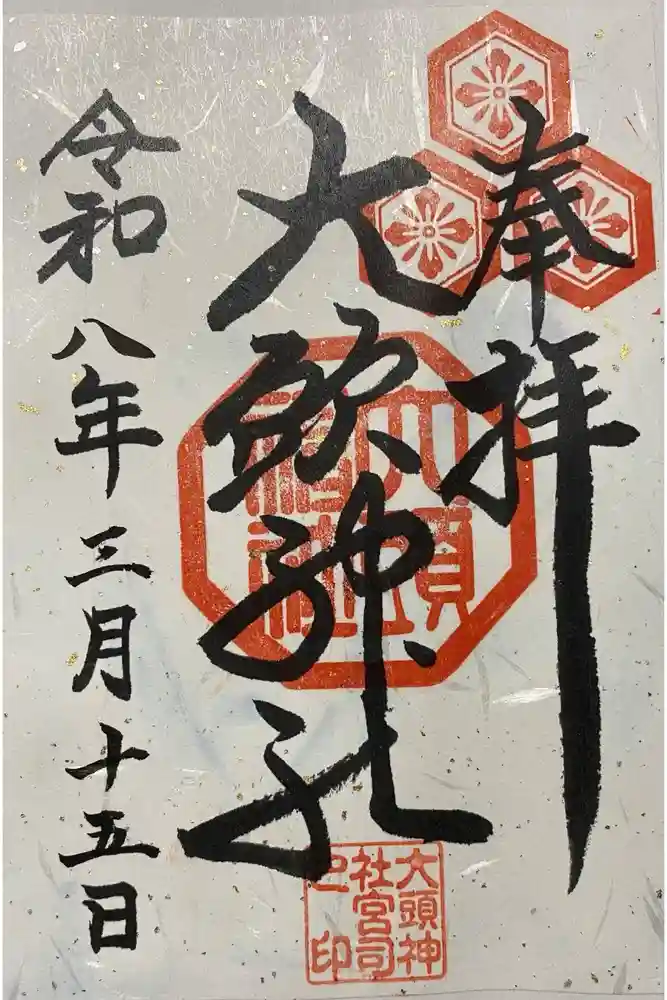 奉拝
大頭神社
令和八年三月十五日
大頭
神社
大頭神
社宮司
之印